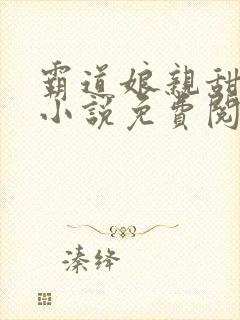 霸道娘親甜
小說免費閱
溱绛